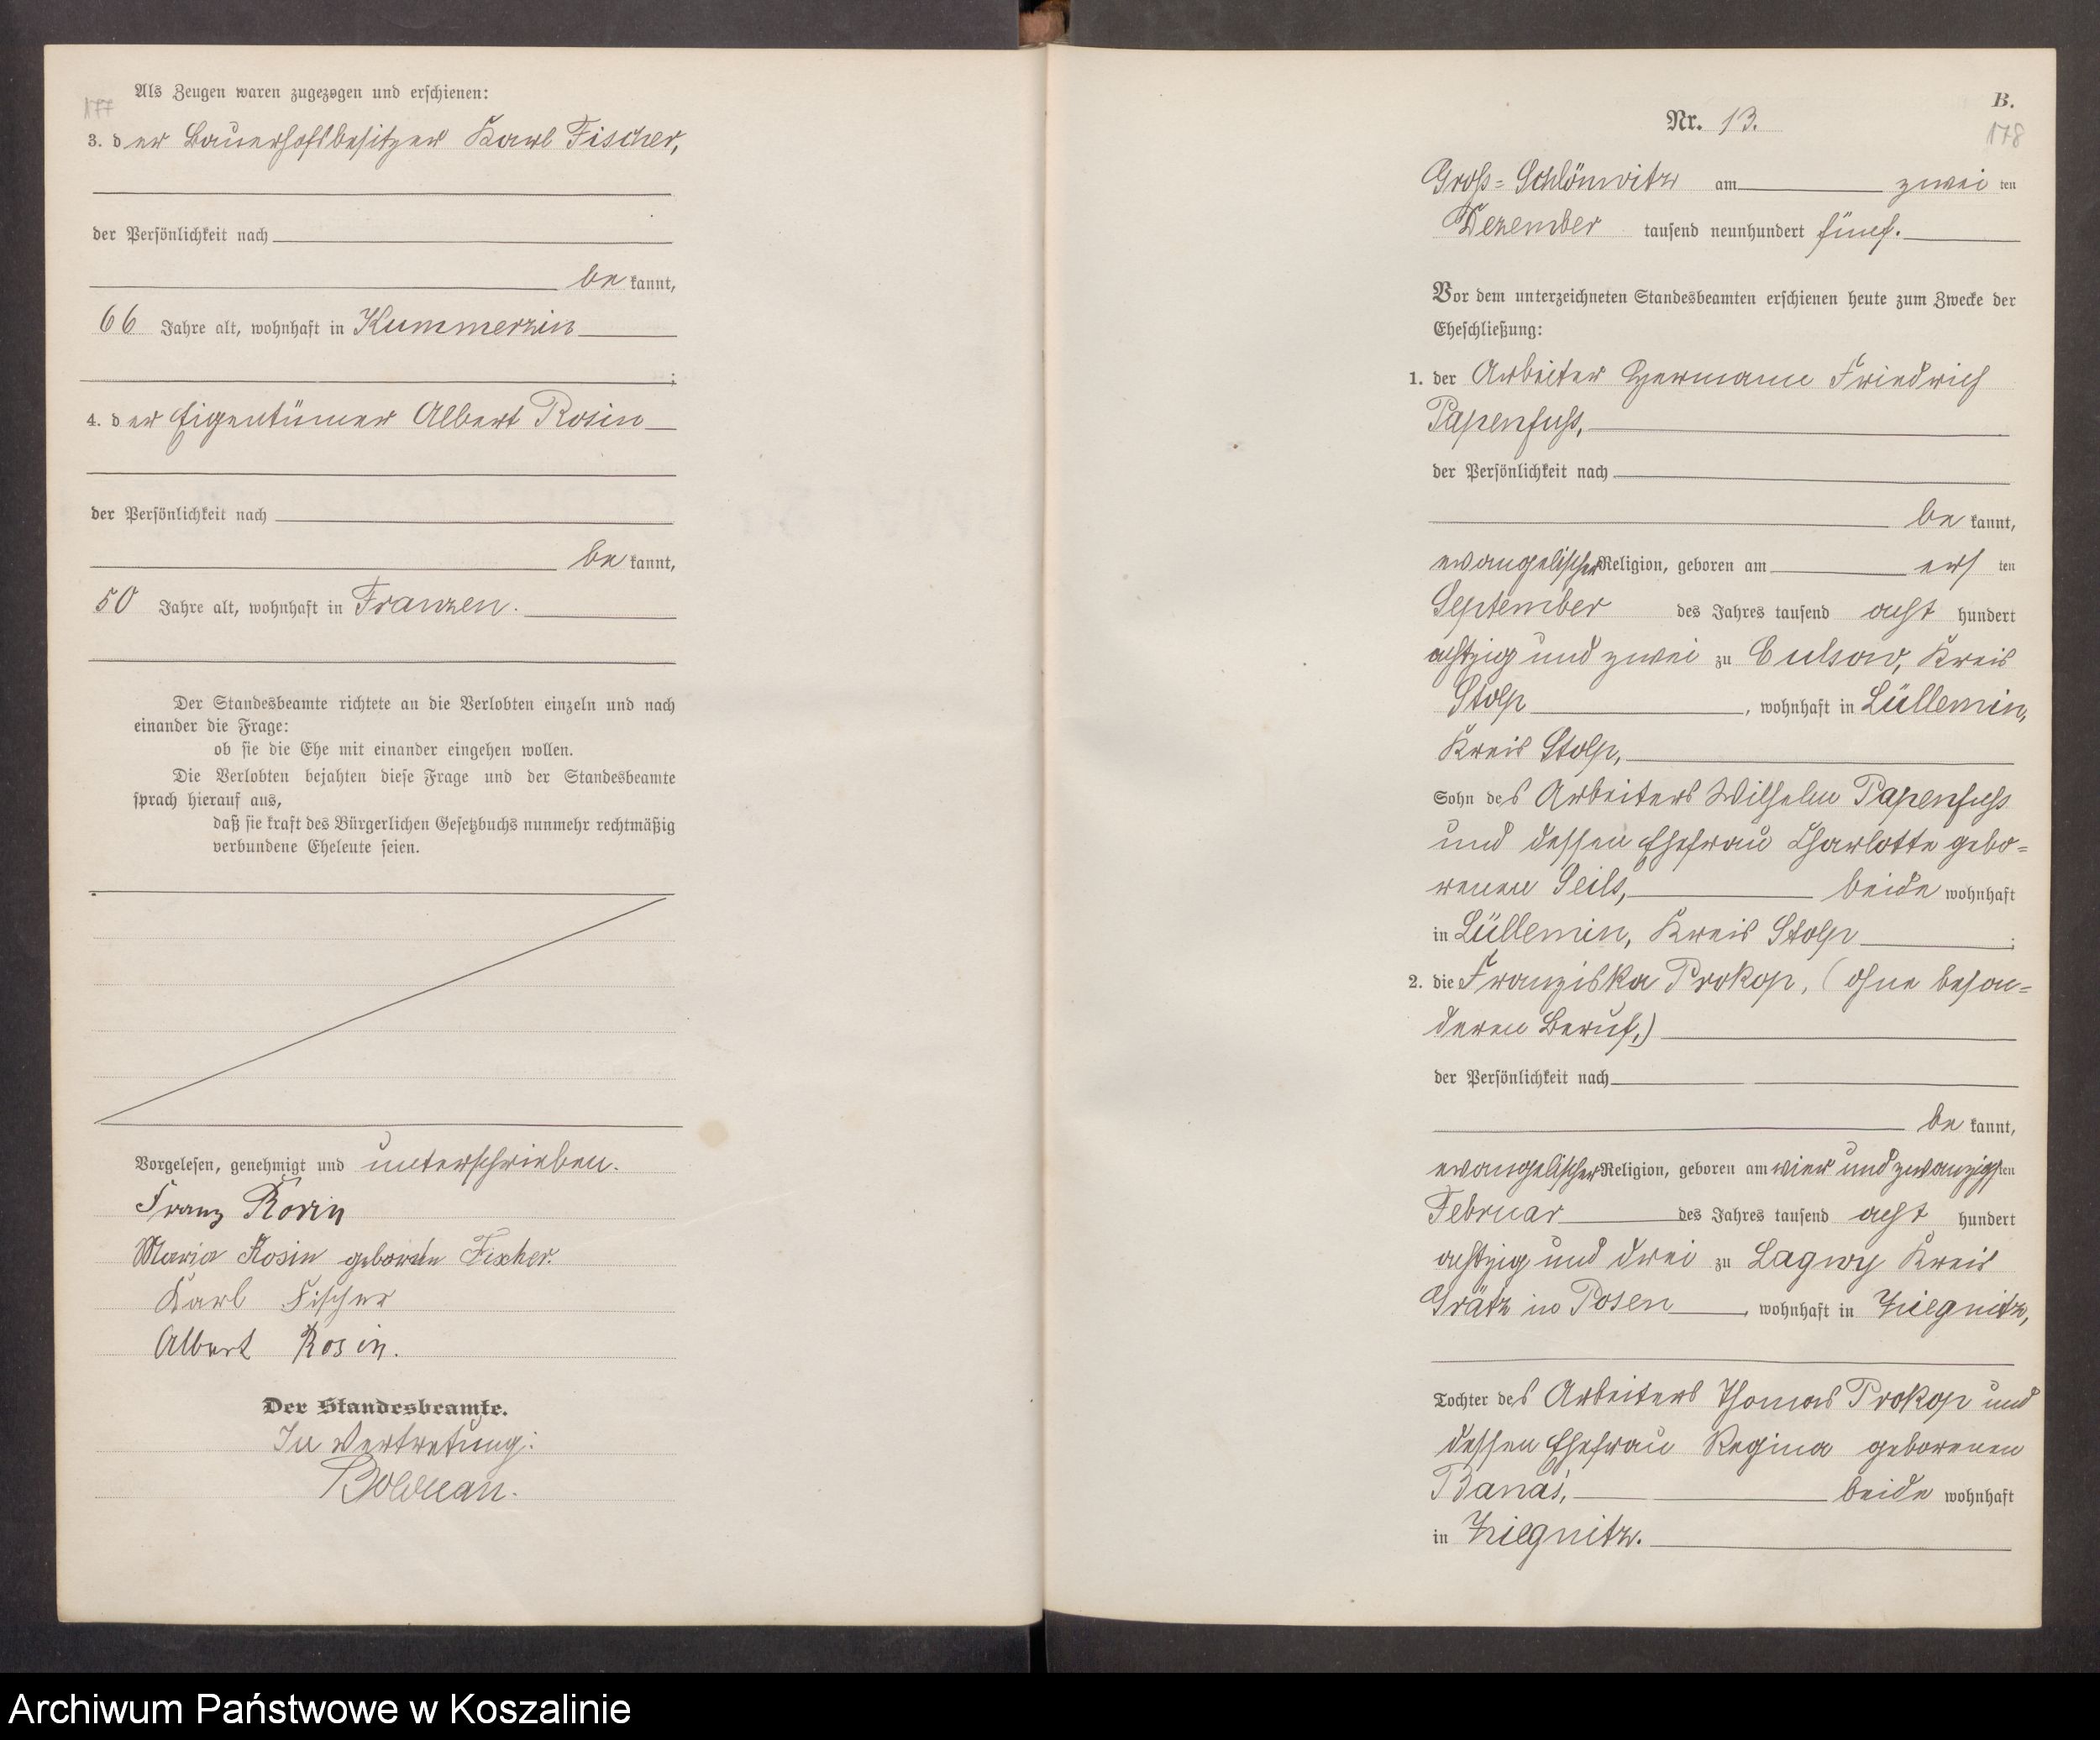 177
Als Zeugen waren zugezogen und erschienen:
3. der Bauerhofsbesitzer Karl Fischer,
der Persönlichkeit nach
be kannt,
66 Jahre alt, wohnhaft in Kummerzin
;
4. der Eigentümer Albert Rosin
der Persönlichkeit nach
be kannt,
50 Jahre alt, wohnhaft in Franzen.
Der Standesbeamte richtete an die Verlobten einzeln und nach
einander die Frage:
ob sie die Ehe mit einander eingehen wollen.
Die Verlobten bejahten diese Frage und der Standesbeamte
sprach hierauf aus,
daß sie kraft des Bürgerlichen Gesetzbuchs nunmehr rechtmäßig
verbundene Eheleute seien.
Vorgelesen, genehmigt und unterschrieben.
Franz Rosin
Maria Rosin geborene Fischer.
Karl Fischer
Albert Rosin.
Der Standesbeamte.
In Vertretung:
B.
178
Nr. 13.
Gross-Schlönwitz am zwei ten
Dezember tausend neunhundert fünf.
Vor dem unterzeichneten Standesbeamten erschienen heute zum Zwecke der
Eheschließung:
1. der Arbeiter Hermann Friedrich
Papenfuss,
der Persönlichkeit nach
be kannt,
evangelischer Religion, geboren am ers ten
September des Jahres tausend acht hundert
achtzig und zwei zu Culsow, Kreis
Stolp, wohnhaft in Lüllemin,
Kreis Stolp,
Sohn des Arbeiters Wilhelm Papenfuss
und dessen Ehefrau Charlotte gebo-
renen Seils, beide wohnhaft
in Lüllemin, Kreis Stolp ;
2. die Franziska Prokop, (ohne beson-
deren Beruf,)
der Persönlichkeit nach
be kannt,
evangelischer Religion, geboren am vier und zwanzigsten
Februar des Jahres tausend acht hundert
achtzig und drei zu Lagwy Kreis
Grätz in Posen, wohnhaft in Ziegnitz,
Tochter des Arbeiters Thomas Prokop und
dessen Ehefrau Regina geborenen
Banaś, beide wohnhaft
in Ziegnitz.
Archiwum Państwowe w Koszalinie